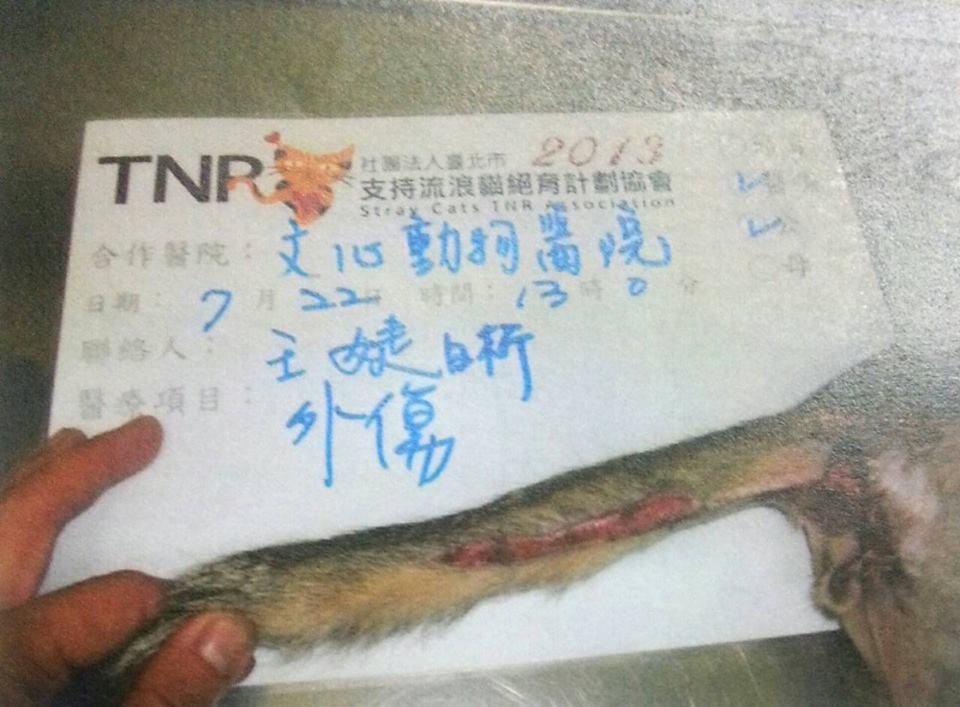 TNR
社團法人臺北市 2013
支持流浪貓絕育計劃協會
Stray Cats TNR Association
合作醫院：文心動物醫院
日期：7月22日 時間：13時0分
聯絡人：王婕
醫療項目：外傷
公
母